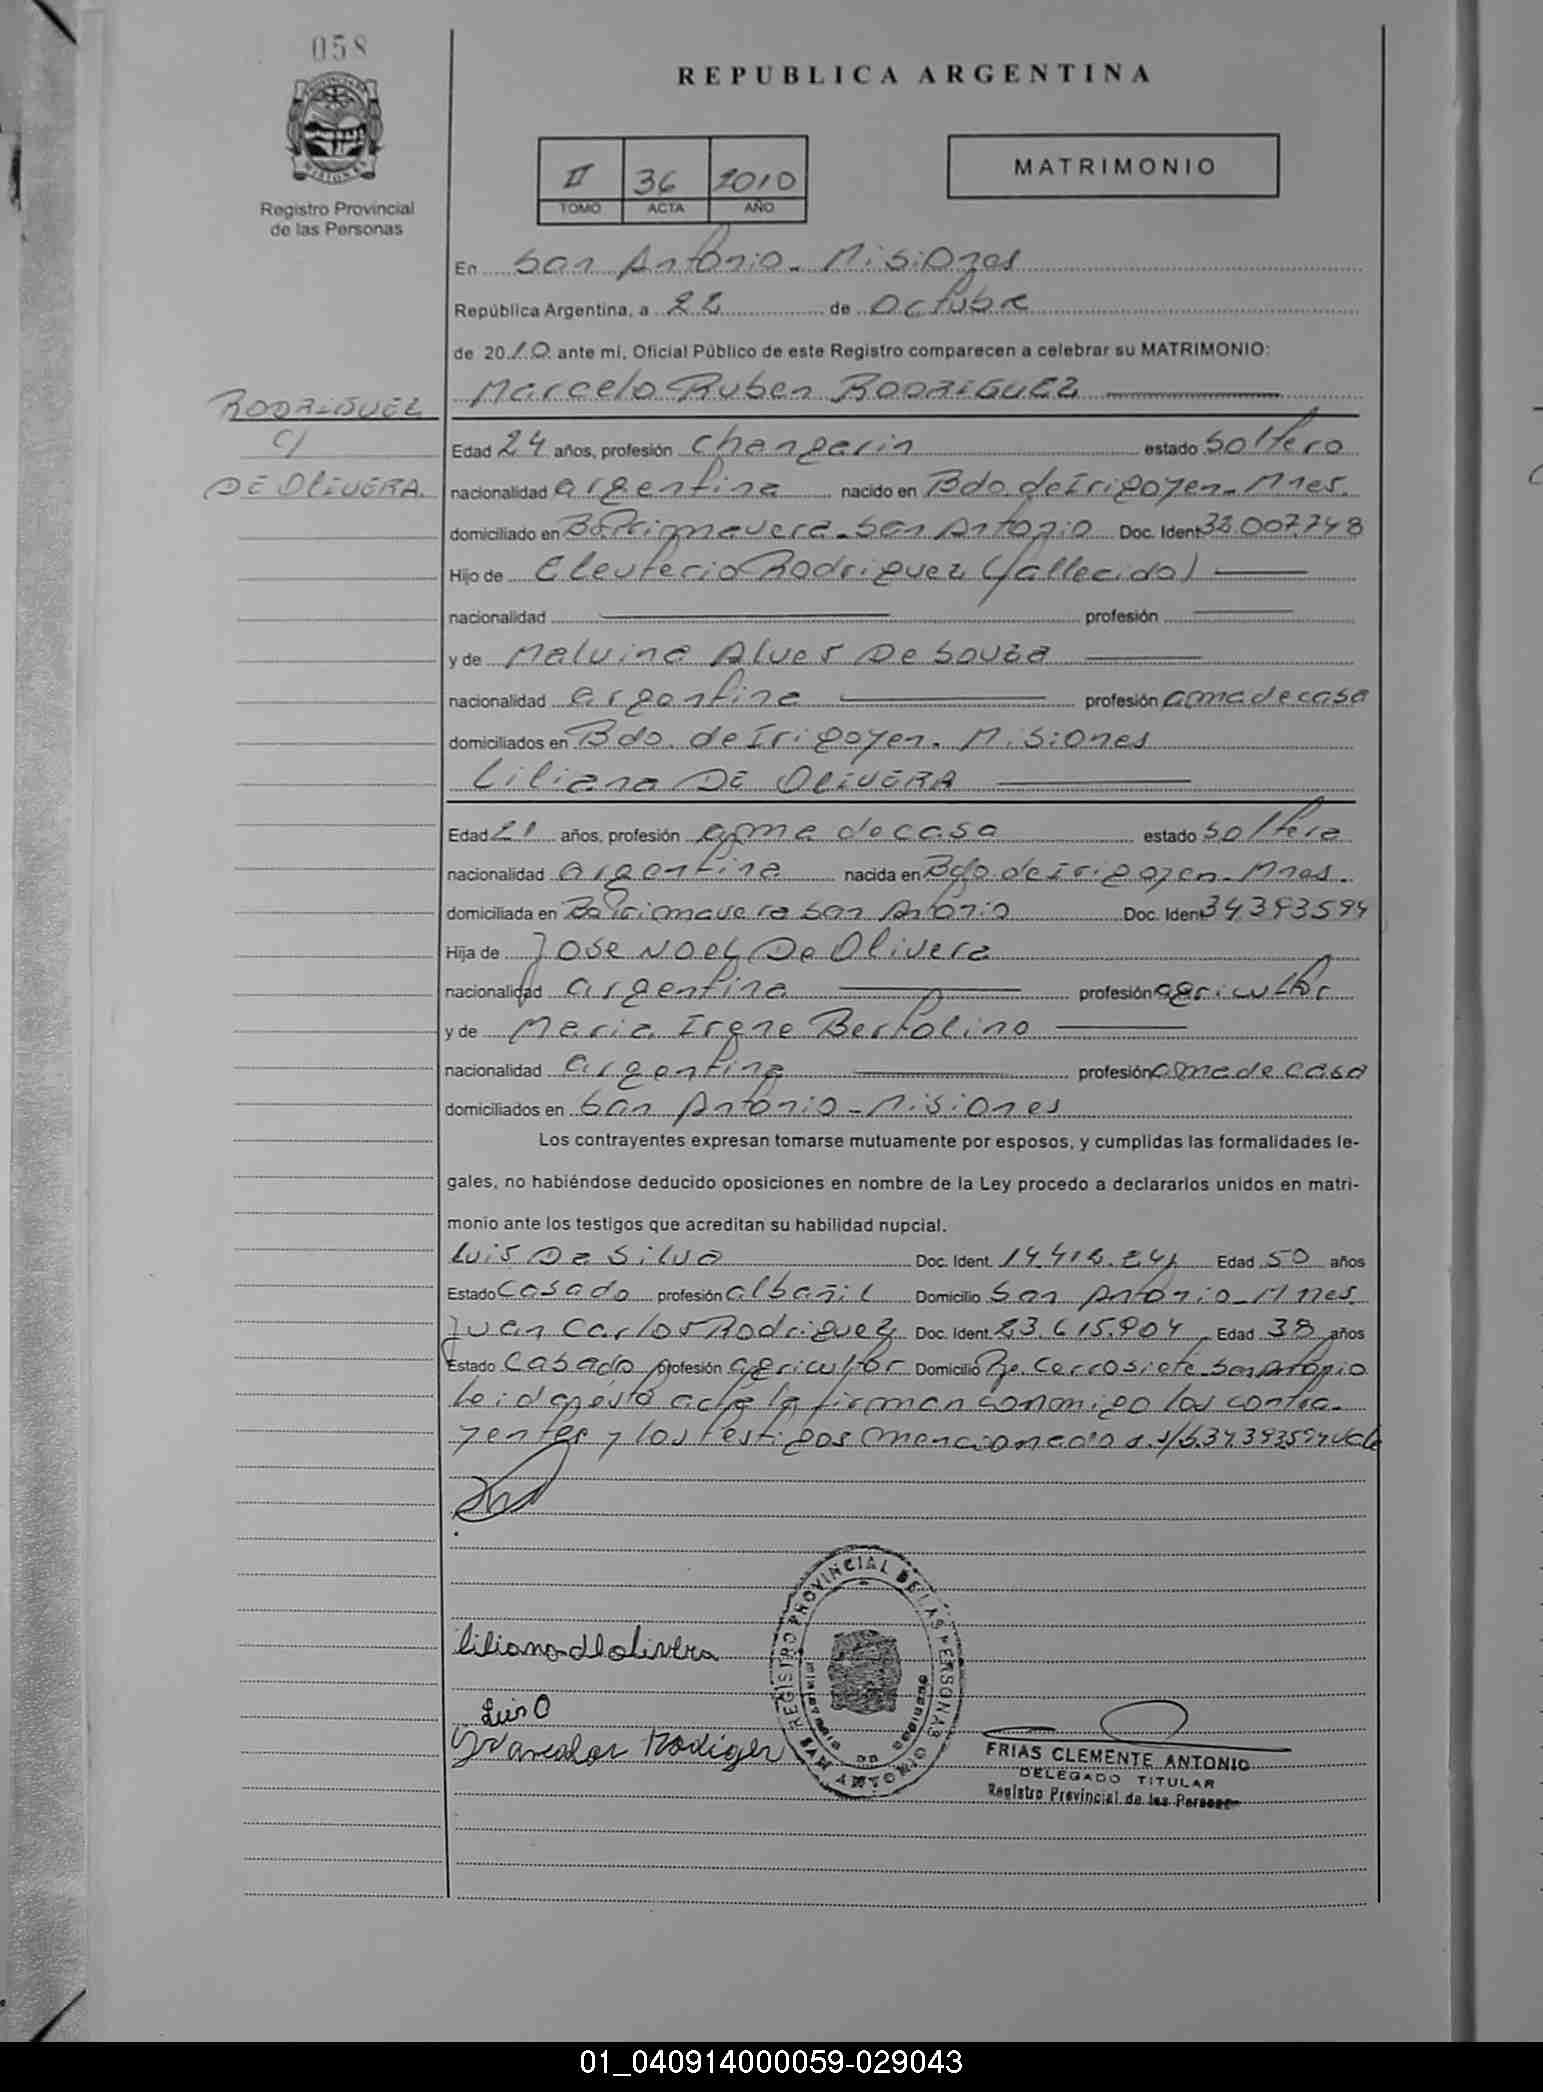 058
REPUBLICA ARGENTINA
II 36 2010
TOMO ACTA AÑO
MATRIMONIO
Registro Provincial
de las Personas
En San Antonio - Misiones
República Argentina, a 22 de Octubre
de 2010 ante mi, Oficial Público de este Registro comparecen a celebrar su MATRIMONIO:
Marcelo Ruben RODRIGUEZ
RODRIGUEZ
C/
DE OLIVERA.
Edad 24 años, profesión changarin estado soltero
nacionalidad argentina nacido en Bdo. de Irigoyen - Mnes.
domiciliado en Bº Primavera - San Antonio Doc. Ident 33.007.748
Hijo de Eleuterio Rodriguez (fallecido)
nacionalidad profesión
y de Malvina Alves De Souza
nacionalidad argentina profesión ama de casa
domiciliados en Bdo. de Irigoyen - Misiones
Liliana DE OLIVERA
Edad 21 años, profesión ama de casa estado soltera
nacionalidad argentina nacida en Bdo de Irigoyen - Mnes.
domiciliada en Bº Primavera San Antonio Doc. Ident 34393594
Hija de Jose Noel De Olivera
nacionalidad argentina profesión agricultor
y de Maria Irene Bertolino
nacionalidad argentina profesión ama de casa
domiciliados en San Antonio - Misiones
Los contrayentes expresan tomarse mutuamente por esposos, y cumplidas las formalidades le-
gales, no habiéndose deducido oposiciones en nombre de la Ley procedo a declararlos unidos en matri-
monio ante los testigos que acreditan su habilidad nupcial.
Luis Da Silva Doc. Ident. Edad 50 años
Estado casado profesión albañil Domicilio San Antonio - Mnes.
Juan Carlos Rodriguez Doc. Ident. 23.615.904 Edad 38 años
Estado casado profesión agricultor Domicilio Pje. Cerro siete San Antonio
Leida ésta acta la firman conmigo los contra-
yentes y los testigos mencionados. s/b. 34393594 vale
liliana de olivera
Luis O
Rodiger
REGISTRO PROVINCIAL DE LAS PERSONAS
MINISTERIO DE GOBIERNO
SAN ANTONIO
FRIAS CLEMENTE ANTONIO
DELEGADO TITULAR
Registro Provincial de las Personas
01_040914000059-029043